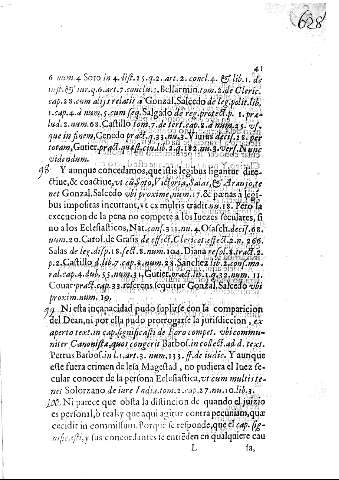 628
41
6 num 4 Soto in 4. dist. 25. q. 2. art. 2. concl. 4. & lib. 1. de
iust. & iur. q. 6. art. 7. conclu. Bellarmin. tom. 2. de Cleric.
cap. 28. cum alijs relatis à Gonzal. Salcedo de leg. polit. lib.
1. cap. 4. à num. 5. cum seq. Salgado de reg. protect. p. 1. præ-
lud. 2. num. 68. Castillo tom. 7. de tert. cap. 8. à num. 25.
que in finem, Cenedo pract. q. 33. nu. 3. Vivius decis. 38. per
totam, Gutier. pract. quæst. ciuil. 2. q. 182. nu. 8. vers. Nunc
videndum.
98 Y aunque concedamos, que istis legibus ligantur dire-
ctiue, & coactiue, vt cũ Soto, Victoria, Salas, & Araujo, te-
net Gonzal. Salcedo vbi proxime num. 17. & pœnas à legi-
bus impositas incurrant, vt ex multis tradit nu. 18. Pero la
execucion de la pena no compete à los Iuezes seculares, si
no à los Eclesiasticos, Nat. cons. 311. nu. 4. Osasch. decis. 68.
num. 20. Carol. de Grasis de effect. Clericat. effect. 2. n. 266.
Salas de leg. disp. 18. sect. 8. num. 104. Diana resol. 8. tract. 2.
p. 2. Castill. d. lib. 7. cap. 8. num. 28. Sanchez lib. 2. cons. mo-
ral. cap. 4. dub. 55. num. 31. Gutier. pract. lib. 1. q. 32. num. 11.
Couar. pract. cap. 33. referens sequitur Gonzal. Salcedo vbi
proxim. num. 19.
99 Ni esta incapacidad pudo suplirse con la comparicion
del Dean, ni por ella pudo prorrogarse la jurisdiccion, ex
aperto text. in cap. significasti de foro compet. vbi commu-
niter Canonistæ, quos congerit Barbos. in collect. ad d. text.
Petrus Barbos. in l. 1. art. 3. num. 133. ff. de iudic. Y aunque
este fuera crimen de lesa Magestad, no pudiera el Iuez se-
cular conocer de la persona Eclesiastica, vt cum multis te-
net Solorzano de iure Indic. tom. 2. cap. 27. nu. 10. lib. 3.
Ni parece que obsta la distincion de quando el juizio
es personal, ò real, y que aqui agitur contra pecuniam, quæ
cecidit in commissum. Porque se responde, que el cap. sig-
nificasti, y sus concordantes te entiẽden en qualquiere cau
L
sa,